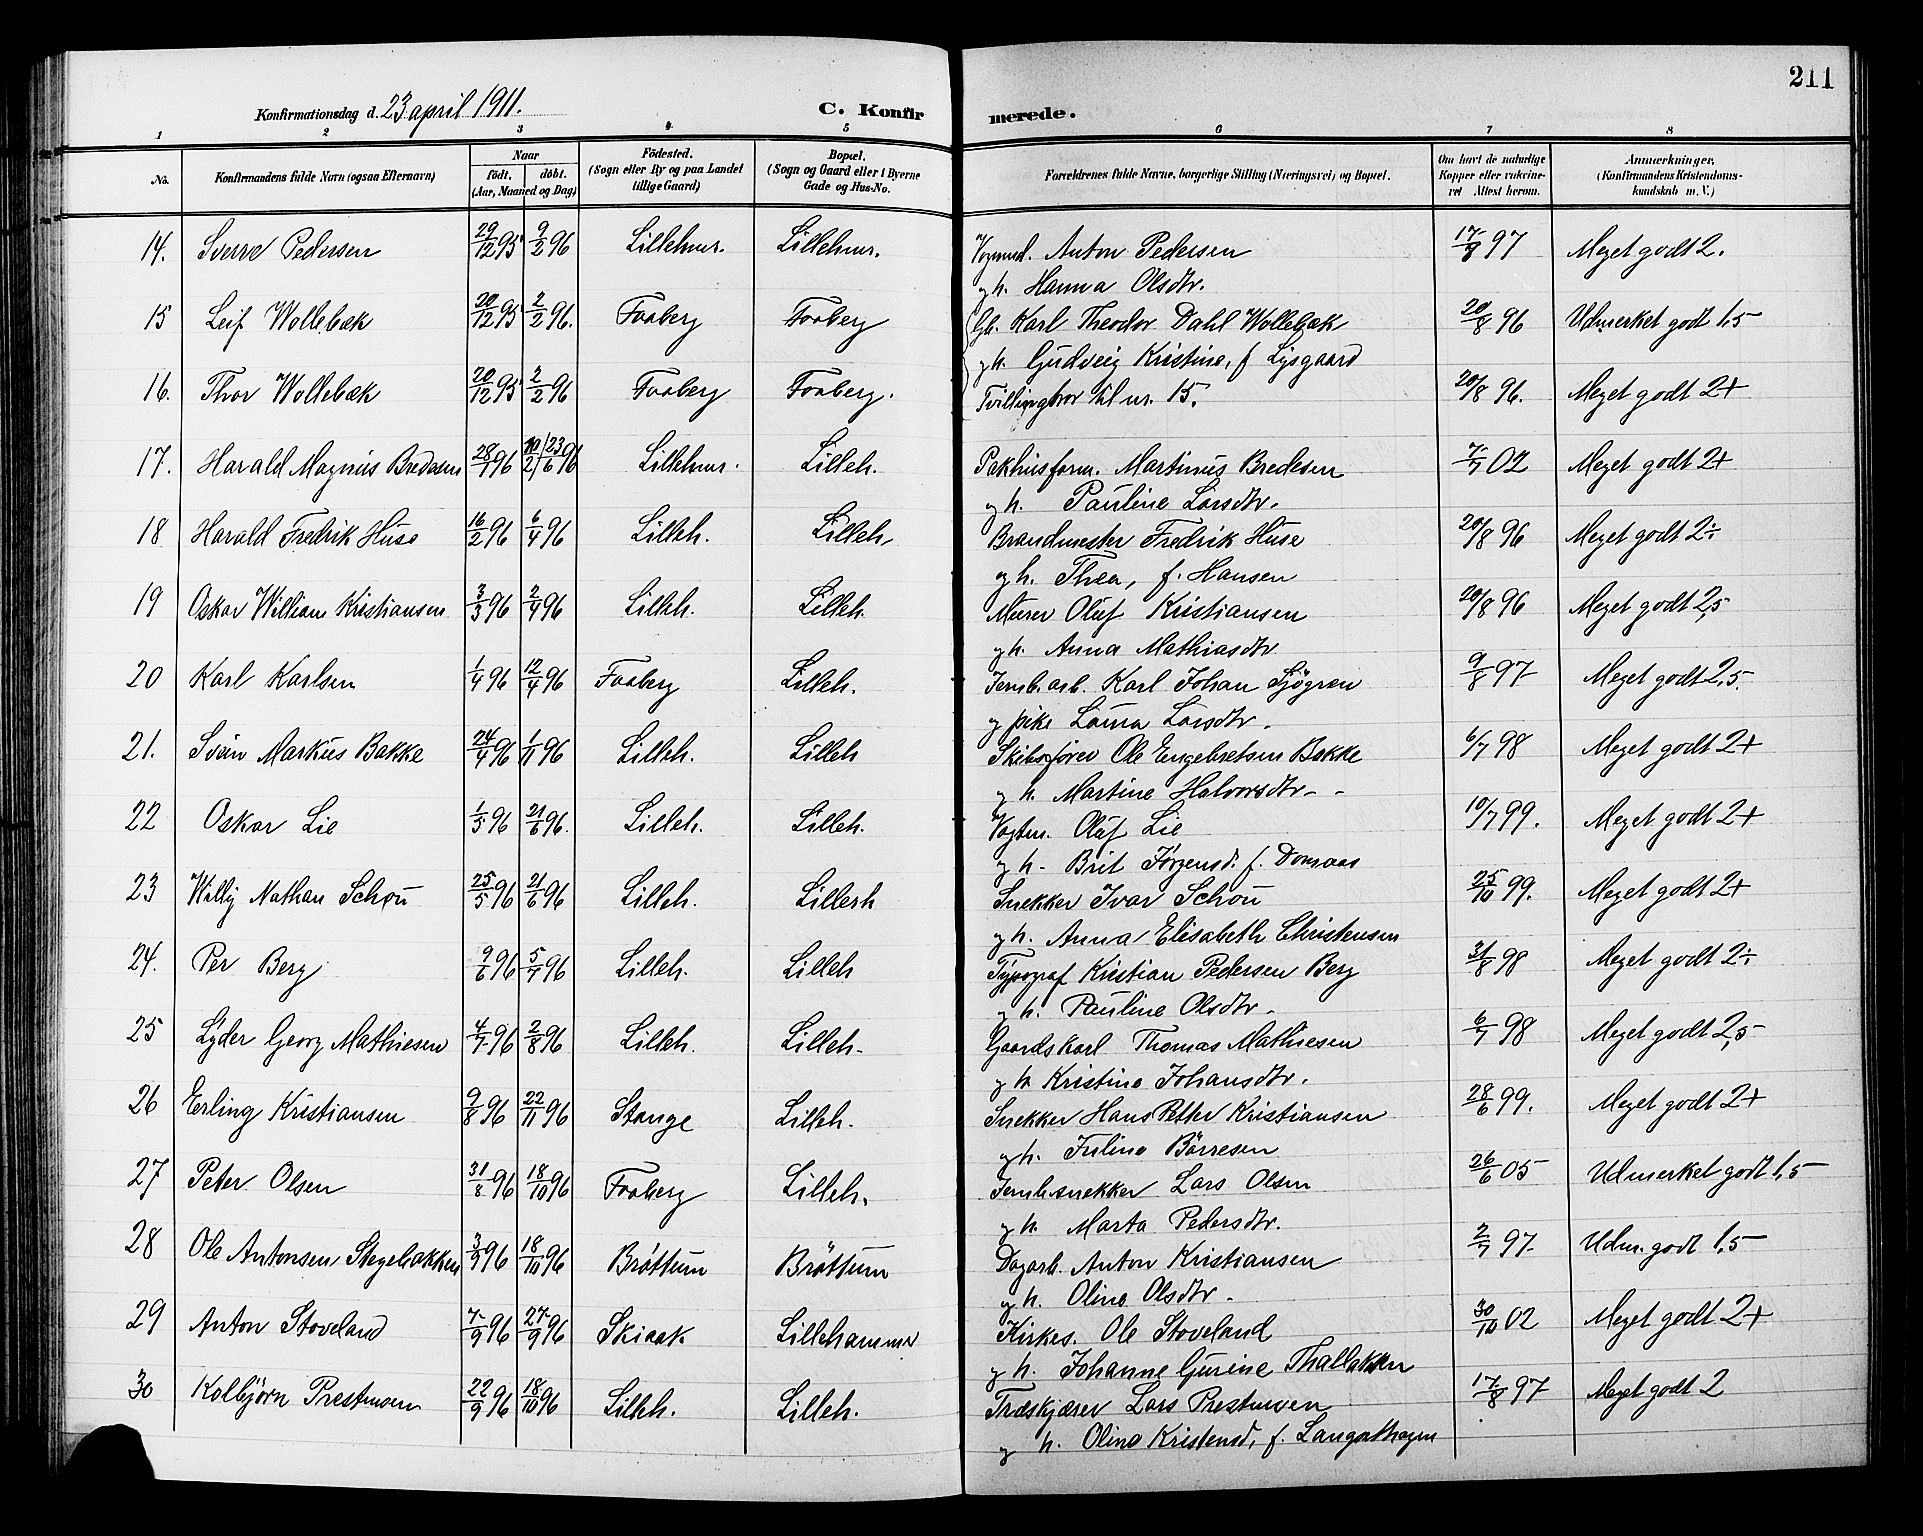 211
Konfirmationsdag d. 23 april 1911.
C. Konfirmerede.
1 2 3 4 5 6 7 8
No. Konfirmandens fulde Navn (ogsaa Efternavn) Naar födt. döbt. (Aar, Maaned og Dag) Födested. (Sogn eller By og paa Landet tillige Gaard) Bopæl. (Sogn og Gaard eller i Byerne Gade og Hus-No. Forældrenes fulde Navne, borgerlige Stilling (Næringsvei) og Bopæl. Om havt de naturlige Kopper eller vakcineret Attest herom. Anmerkninger. (Konfirmandens Kristendomskundskab m. V.)
14. Sverre Pedersen 29/12 95 9/2 96 Lillehmr. Lillehmr. Vognmd. Anton Pedersen 17/8 97 Meget godt 2.
og h. Hanna Olsdtr.
15 Leif Wollebæk 20/12 95 2/2 96. Faaberg Faaberg Gb. Karl Theodor Dahl Wollebæk 20/8 96 Udmerket godt 1,5
og h. Gudveig Kristine, f Lysgaard
16. Thor Wollebæk 20/12 95 2/2 96 Faaberg Faaberg. Tvillingbror til nr. 15. 20/8 96. Meget godt 2+
17. Harald Magnus Bredesen 28/1 96 /23/6 96 Lillehmr. Lilleh. Pakhusform. Martinus Bredesen 7/7 02 Meget godt 2+
og h. Pauline Larsdtr.
18 Harald Fredrik Huse 16/2 96 6/4 96 Lilleh. Lilleh. Brandmester Fredrik Huse 20/8 96 Meget godt 2÷
og h. Thea, f. Hansen
19 Oskar William Kristiansen 3/3 96 2/4 96 Lilleh. Lilleh. Murer Oluf Kristiansen 20/8 96 Meget godt 2,5
og h. Anna Mathiasdtr
20 Karl Karlsen 1/4 96 12/4 96 Faaberg Lilleh. Jernb.arb. Karl Johan Sjögren 9/8 97 Meget godt 2,5.
og pike Laura Larsdtr.
21. Svein Markus Bakke 24/4 96 1/11 96 Lilleh. Lilleh Skibsfører Ole Engebretsen Bakke 6/7 98 Meget godt 2+
og h. Martine Halvorsdtr
22 Oskar Lie 1/5 96 21/6 96. Lilleh. Lilleh. Vogtm. Oluf Lie 10/7 99. Meget godt 2+
og h. Brit Jørgensd. f. Domaas
23 Willy Nathan Schou 25/5 96 21/6 96 Lilleh. Lilleh Snekker Ivar Schou 25/10 99. Meget godt 2+
og h. Anna Elisabeth Christensen
24. Per Berg 9/6 96 5/7 96 Lilleh. Lilleh Typograf Kristian Pedersen Berg 31/8 98 Meget godt 2÷
og h. Pauline Olsdtr.
25 Lyder Georg Mathiesen 4/7 96 2/8 96 Lilleh. Lilleh. Gaardskarl Thomas Mathiesen 6/7 98 Meget godt 2,5
og h Kristine Johansdtr.
26 Erling Kristiansen 9/8 96 22/11 96 Stange Lilleh. Snekker Hans Petter Kristiansen 28/6 99. Meget godt 2+
og h. Juline Börresen
27 Peter Olsen 31/8 96 18/10 96 Faaberg Lilleh. Jernb.snekker Lars Olsen 26/6 05 Udmerket godt 1,5
og h. Marta Pedersdtr.
28 Ole Antonsen Stegebakken 3/9 96 18/10 96 Bröttum Bröttum Dagarb. Anton Kristiansen 2/7 97. Udm. godt 1,5
og h. Oline Olsdtr.
29 Anton Stoveland 7/9 96 27/9 96 Skiaak Lillehammer Kirkes. Ole Stoveland 30/10 02 Meget godt 2+
og h. Johanne Gurine Thallaksen
30 Kolbjörn Prestmoen 22/9 96 18/10 96 Lilleh. Lilleh. Træskjærer Lars Prestmoen 17/8 97 Meget godt 2
og h. Oline Kristensd, f. Langathagen